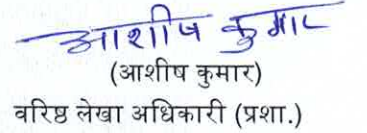 आशीष कुमार
(आशीष कुमार)
वरिष्ठ लेखा अधिकारी (प्रशा.)